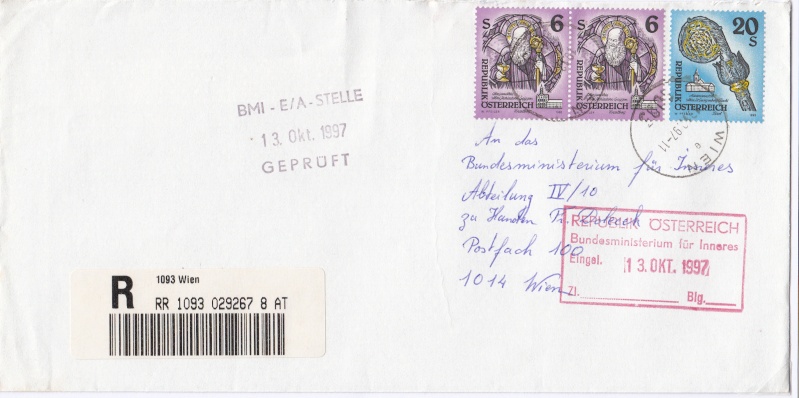 S 6
REPUBLIK
ÖSTERREICH
S 6
REPUBLIK
ÖSTERREICH
20 S
REPUBLIK
ÖSTERREICH
WIEN
BMI - E/A - STELLE
13. Okt. 1997
GEPRÜFT
An das
Bundesministerium für Inneres
Abteilung IV/10
zu Handen
Postfach 100
1014 Wien
REPUBLIK ÖSTERREICH
Bundesministerium für Inneres
Eingel. 13. OKT. 1997
Zl. Blg.
R
1093 Wien
RR 1093 029267 8 AT